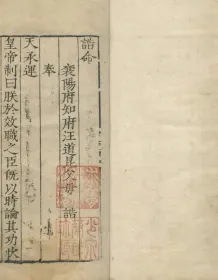 誥命
襄陽府知府汪道昆父母　誥
奉
天承運
皇帝制曰朕於效職之臣旣以時論其功伐